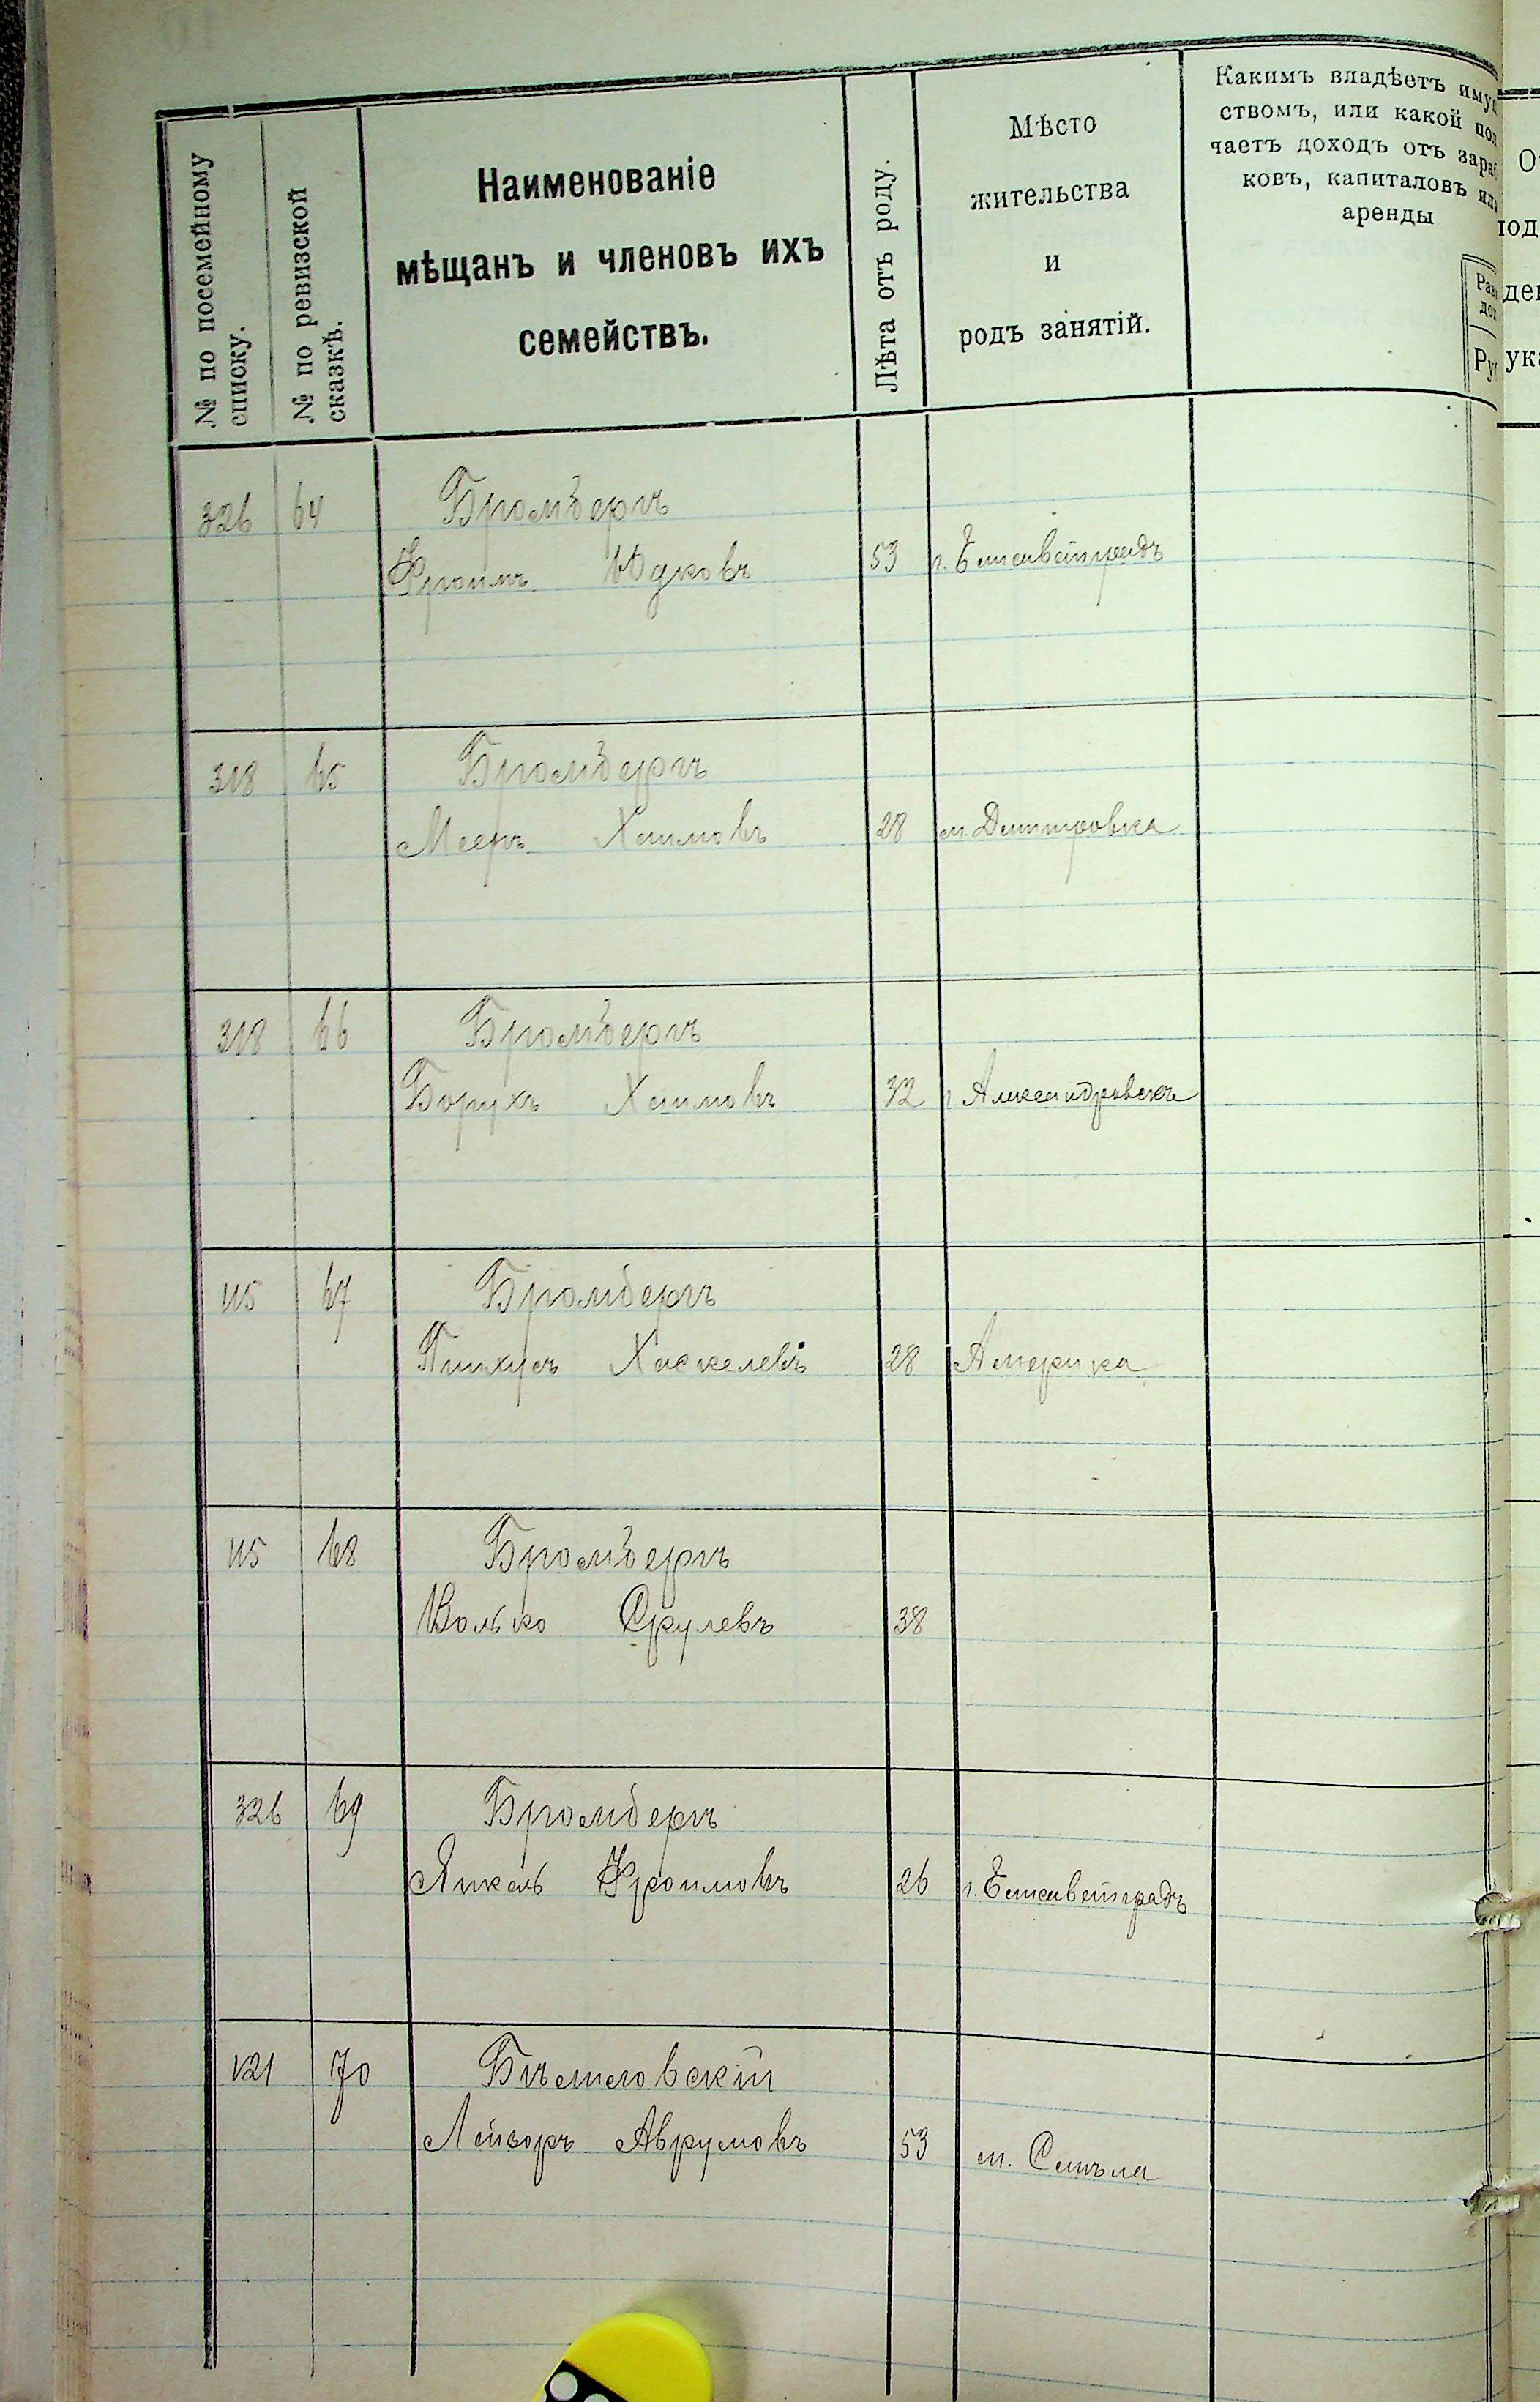 № по посемейному
списку.
№ по ревизской
сказкѣ.
Наименованіе
мѣщанъ и членовъ ихъ
семействъ.
Лѣта отъ роду.
Мѣсто
жительства
и
родъ занятій.
Какимъ владѣетъ
ствомъ, или какой
чаетъ доходъ отъ
ковъ, капиталовъ
аренды
326 64 Бромбергъ
Фроимъ Юдковъ 53 г. Елисаветградъ
318 65 Бромбергъ
Мееръ Хаимовъ 28 м. Дмитровка
318 66 Бромбергъ
Борухъ Хаимовъ 32 г. Александровскъ
115 67 Бромбергъ
Пинхусъ Хаскелевъ 28 Америка
115 68 Бромбергъ
Волько Срулевъ 38
326 69 Бромбергъ
Янкель Фроимовъ 26 г. Елисаветградъ
121 70
Лейзоръ Аврумовъ 53 м. Смѣла